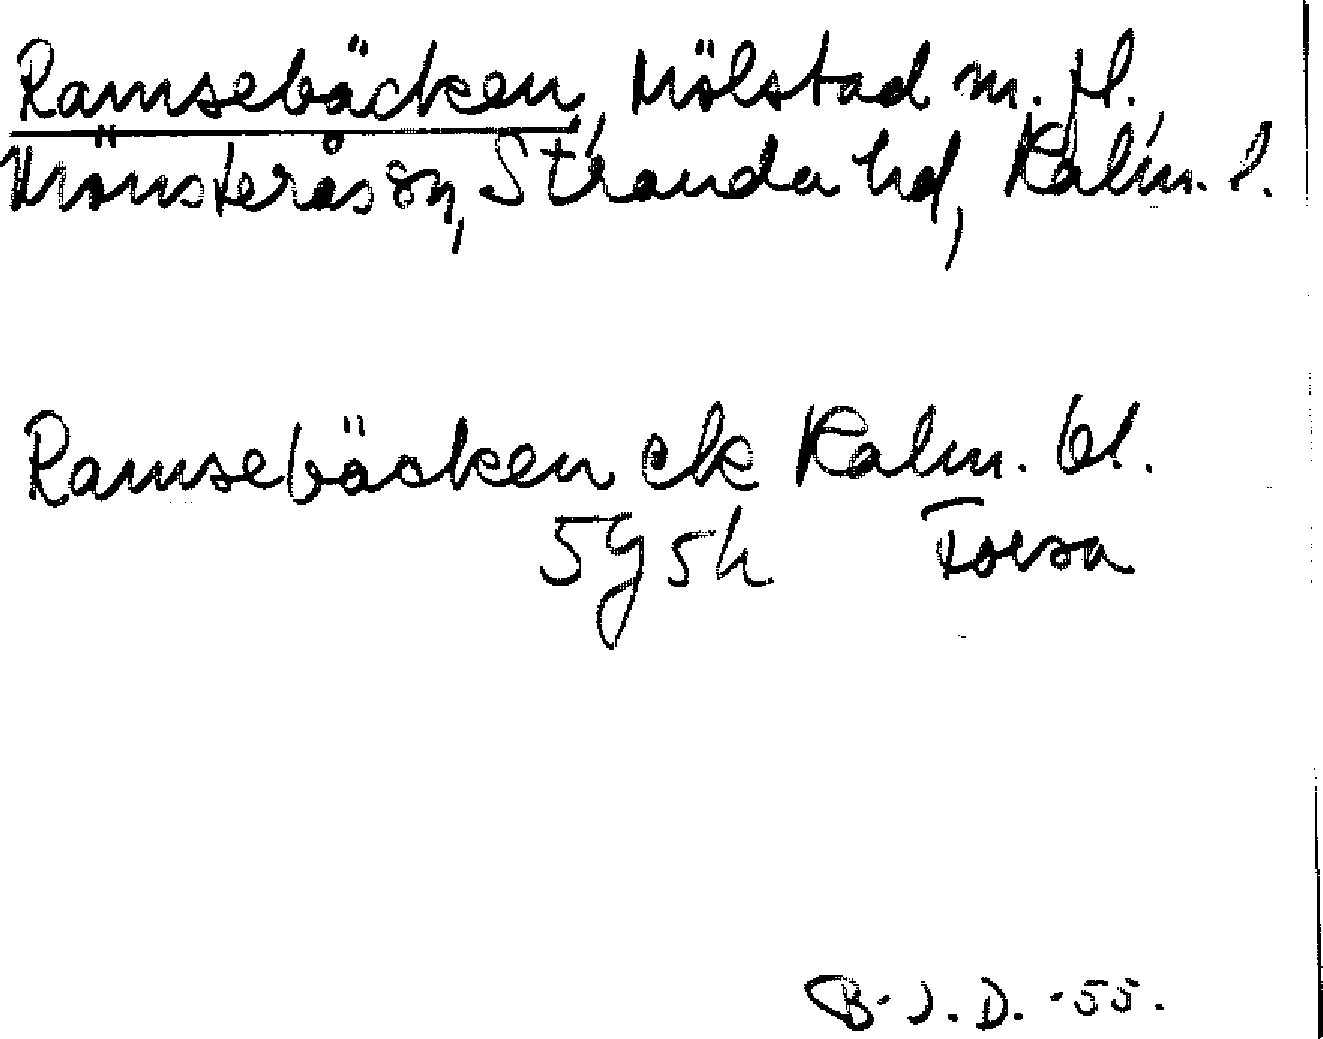 Ramsebäcken, Mölstad m. fl.
Mönsterås sn, Stranda hd, Kalm. l.
Ramsebäcken ek Kalm. bl.
5g5h Forsa
B.J.D. -55.